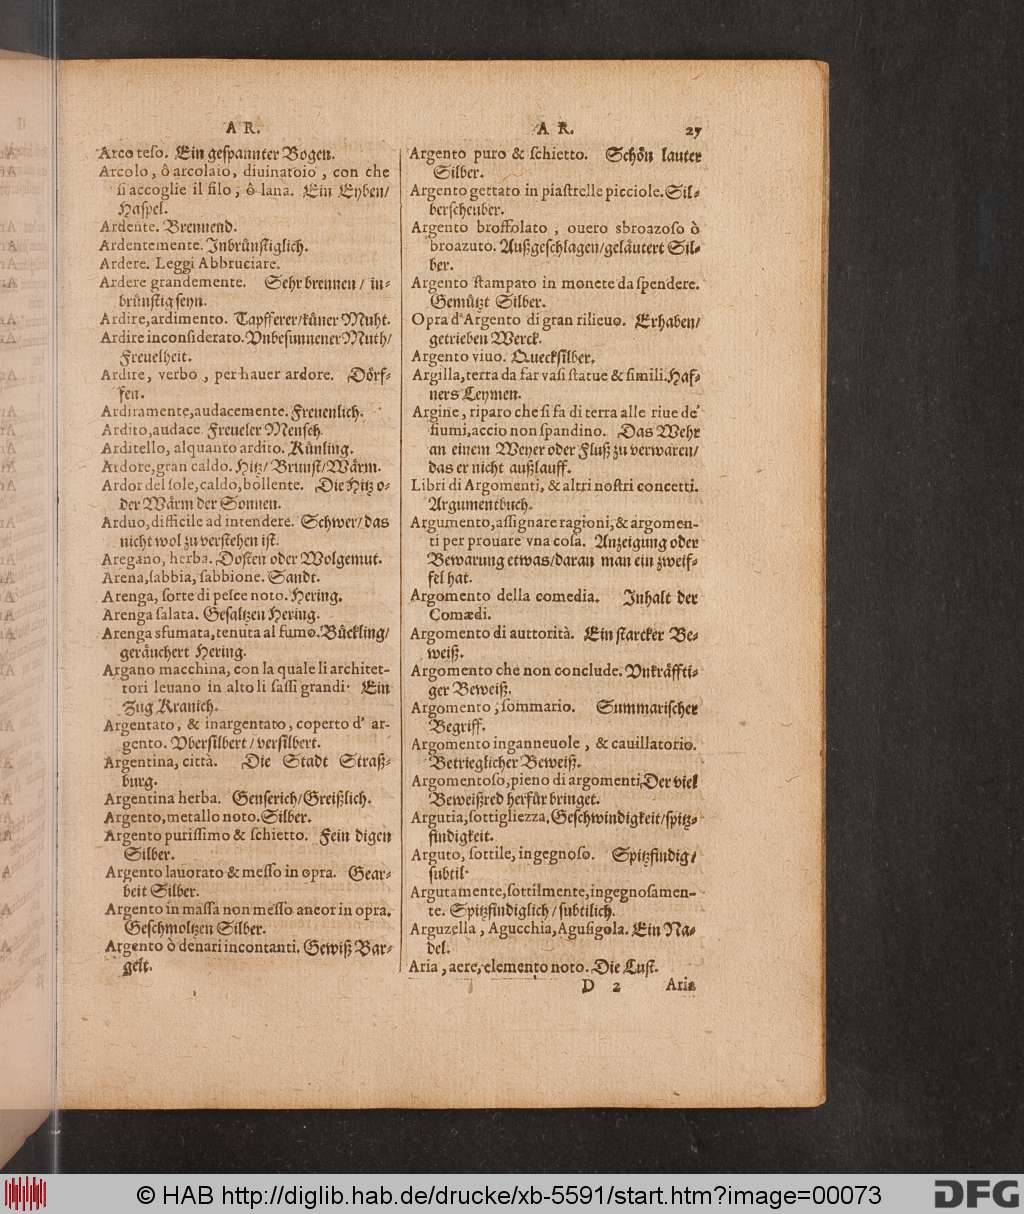 A R.
Arco teſo. Ein geſpannter Bogen.
Arcolo, ô arcolaio, diuinatoio, con che
ſi accoglie il filo, ô lana. Ein Eyben/
Haſpel.
Ardente. Brennend.
Ardentemente. Inbrünſtiglich.
Ardere. Leggi Abbruciare.
Ardere grandemente. Sehr brennen / in-
brünſtig ſeyn.
Ardire, ardimento. Tapfferer/küner Muht.
Ardire inconſiderato. Vnbeſunnener Muth/
Freuelheit.
Ardire, verbo, per hauer ardore. Dörf-
fen.
Arditamente, audacemente. Freuenlich.
Ardito, audace. Freueler Menſch.
Arditello, alquanto ardito. Künling.
Ardore, gran caldo. Hitz/ Brunſt/Wärm.
Ardor del ſole, caldo, bollente. Die Hitz o-
der Wärm der Sonnen.
Arduo, difficile ad intendere. Schwer/das
nicht wol zu verſtehen iſt.
Aregano, herba. Doſten oder Wolgemut.
Arena, ſabbia, ſabbione. Sandt.
Arenga, ſorte di peſce noto. Hering.
Arenga ſalata. Geſaltzen Hering.
Arenga sfumata, tenuta al fumo. Bückling/
geräuchert Hering.
Argano macchina, con la quale li architet-
tori leuano in alto li ſaſſi grandi. Ein
Zug Kranich.
Argentato, & inargentato, coperto d' ar-
gento. Vberſilbert / verſilbert.
Argentina, città. Die Stadt Straß-
burg.
Argentina herba. Genſerich/Greißlich.
Argento, metallo noto. Silber.
Argento puriſſimo & ſchietto. Fein digen
Silber.
Argento lauorato & meſſo in opra. Gear-
beit Silber.
Argento in maſſa non meſſo ancor in opra.
Geſchmoltzen Silber.
Argento ò denari incontanti. Gewiß Bar-
gelt.
A R. 27
Argento puro & ſchietto. Schön lauter
Silber.
Argento gettato in piaſtrelle picciole. Sil-
berſcheuber.
Argento broſſolato, ouero sbroazoſo ò
broazuto. Außgeſchlagen/geläutert Sil-
ber.
Argento ſtampato in monete da ſpendere.
Gemützt Silber.
Opra d'Argento di gran rilieuo. Erhaben/
getrieben Werck.
Argento viuo. Queckſilber.
Argilla, terra da far vaſi ſtatue & ſimili. Haf-
ners Leymen.
Argine, riparo che ſi fa di terra alle riue de'
fiumi, accio non ſpandino. Das Wehr
an einem Weyer oder Fluß zu verwaren/
das er nicht außlauff.
Libri di Argomenti, & altri noſtri concetti.
Argumentbuch.
Argumento, aſſignare ragioni, & argomen-
ti per prouare vna coſa. Anzeigung oder
Bewarung etwas/daran man ein zweif-
fel hat.
Argomento della comedia. Inhalt der
Comædi.
Argomento di auttorità. Ein ſtarcker Be-
weiß.
Argomento che non conclude. Vnkräffti-
ger Beweiß.
Argomento, ſommario. Summariſcher
Begriff.
Argomento inganneuole, & cauillatorio.
Betrieglicher Beweiß.
Argomentoſo, pieno di argomenti. Der viel
Beweißred herfür bringet.
Argutia, ſottigliezza. Geſchwindigkeit/ſpitz-
findigkeit.
Arguto, ſottile, ingegnoſo. Spitzfindig/
ſubtil.
Argutamente, ſottilmente, ingegnoſamen-
te. Spitzfindiglich / ſubtilich.
Arguzella, Agucchia, Aguſigola. Ein Na-
del.
Aria, aere, elemento noto. Die Luft.
D 2 Aria
© HAB http://diglib.hab.de/drucke/xb-5591/start.htm?image=00073
DFG